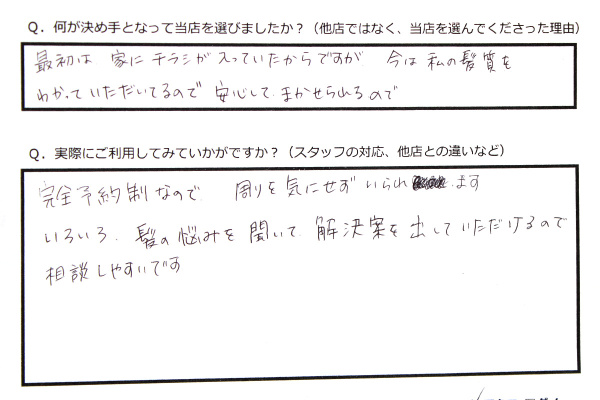 Q．何が決め手となって当店を選びましたか？（他店ではなく、当店を選んでくださった理由）
最初は 家に チラシが入っていたからですが 今は 私の髪質を
わかっていただいてるので 安心して まかせられるので
Q．実際にご利用してみていかがですか？（スタッフの対応、他店との違いなど）
完全予約制なので 周りを気にせず いられ ます
いろいろ、髪の悩みを 聞いて、解決案を出していただけるので
相談しやすいです